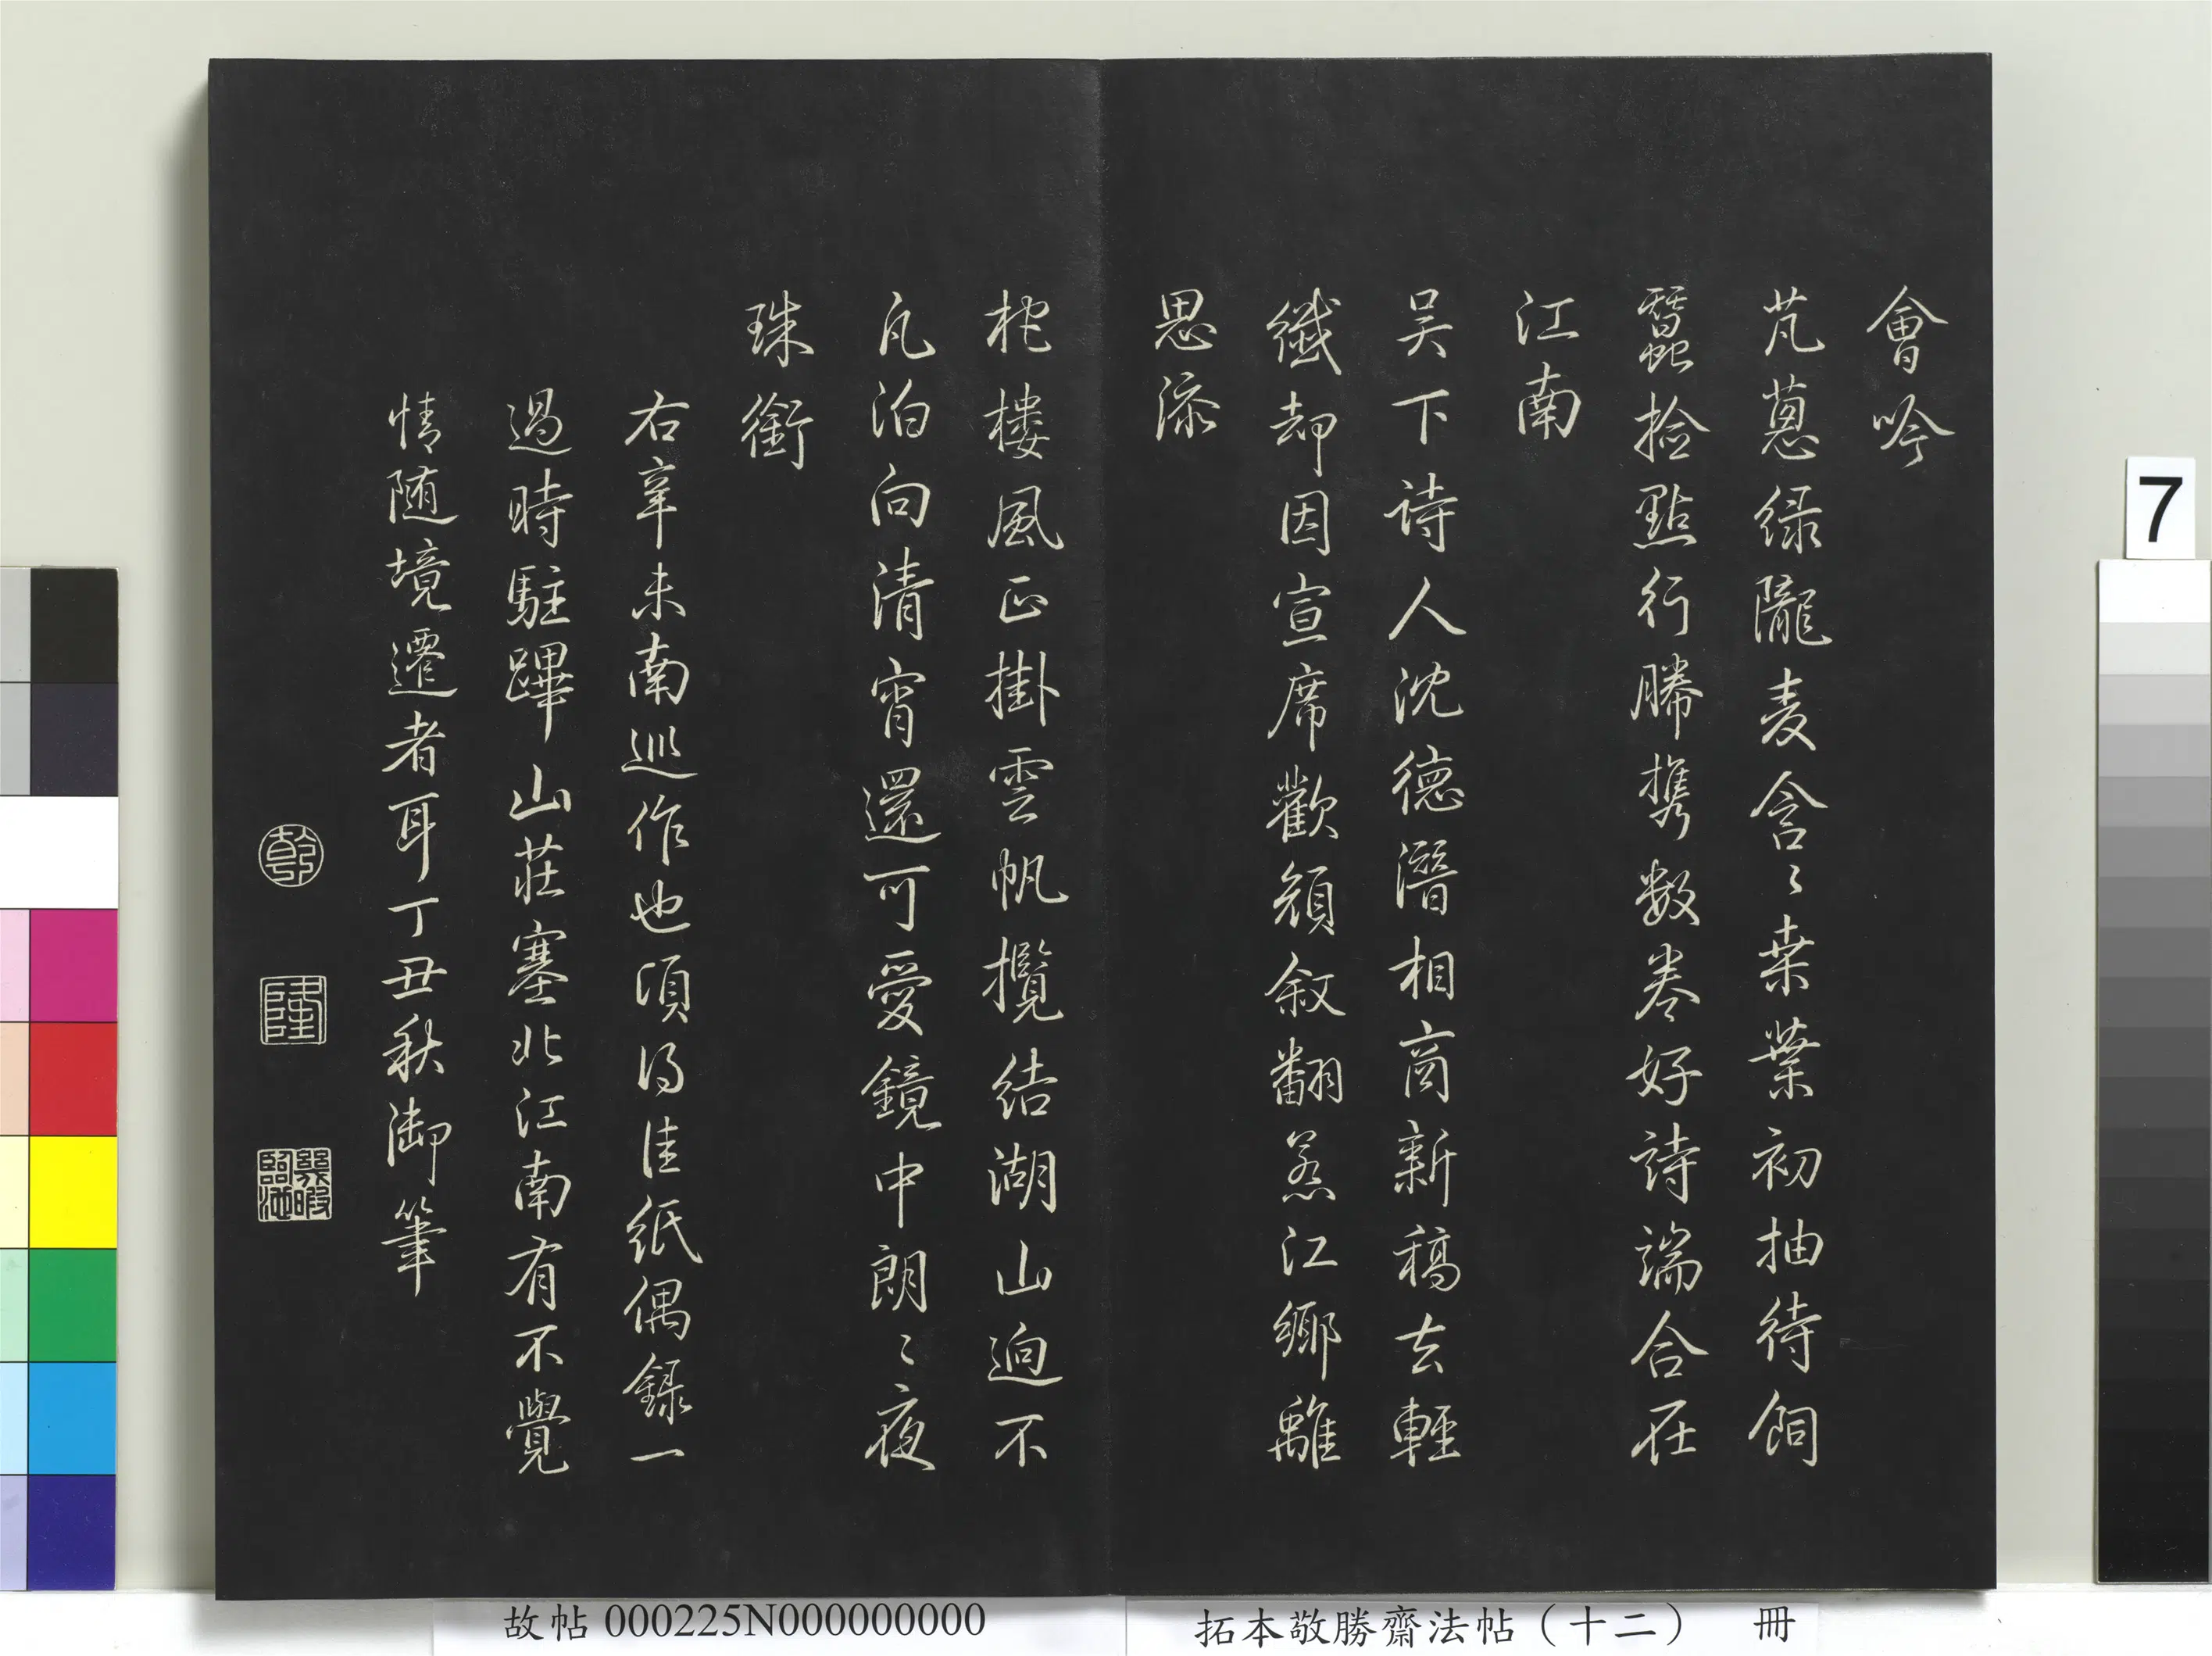 會吟
芃蔥綠隴麦含〻桒葉初抽待飼
蠶撿點行縢携數卷好詩端合在
江南
吴下詩人沈德潛相商新稿去輕
纖却因宣席歡顏敘翻惹江鄉離
思添
柁樓風正掛雲帆攬結湖山迥不
凡泊向清宵還可愛鏡中朗〻夜
珠銜
右辛未南巡作也頃得佳紙偶録一
過時駐蹕山莊塞北江南有不覺
情随境遷者耳丁丑秋御筆
乾
隆
幾暇臨池
7
故帖 000225N000000000
拓本敬勝齋法帖（十二） 冊